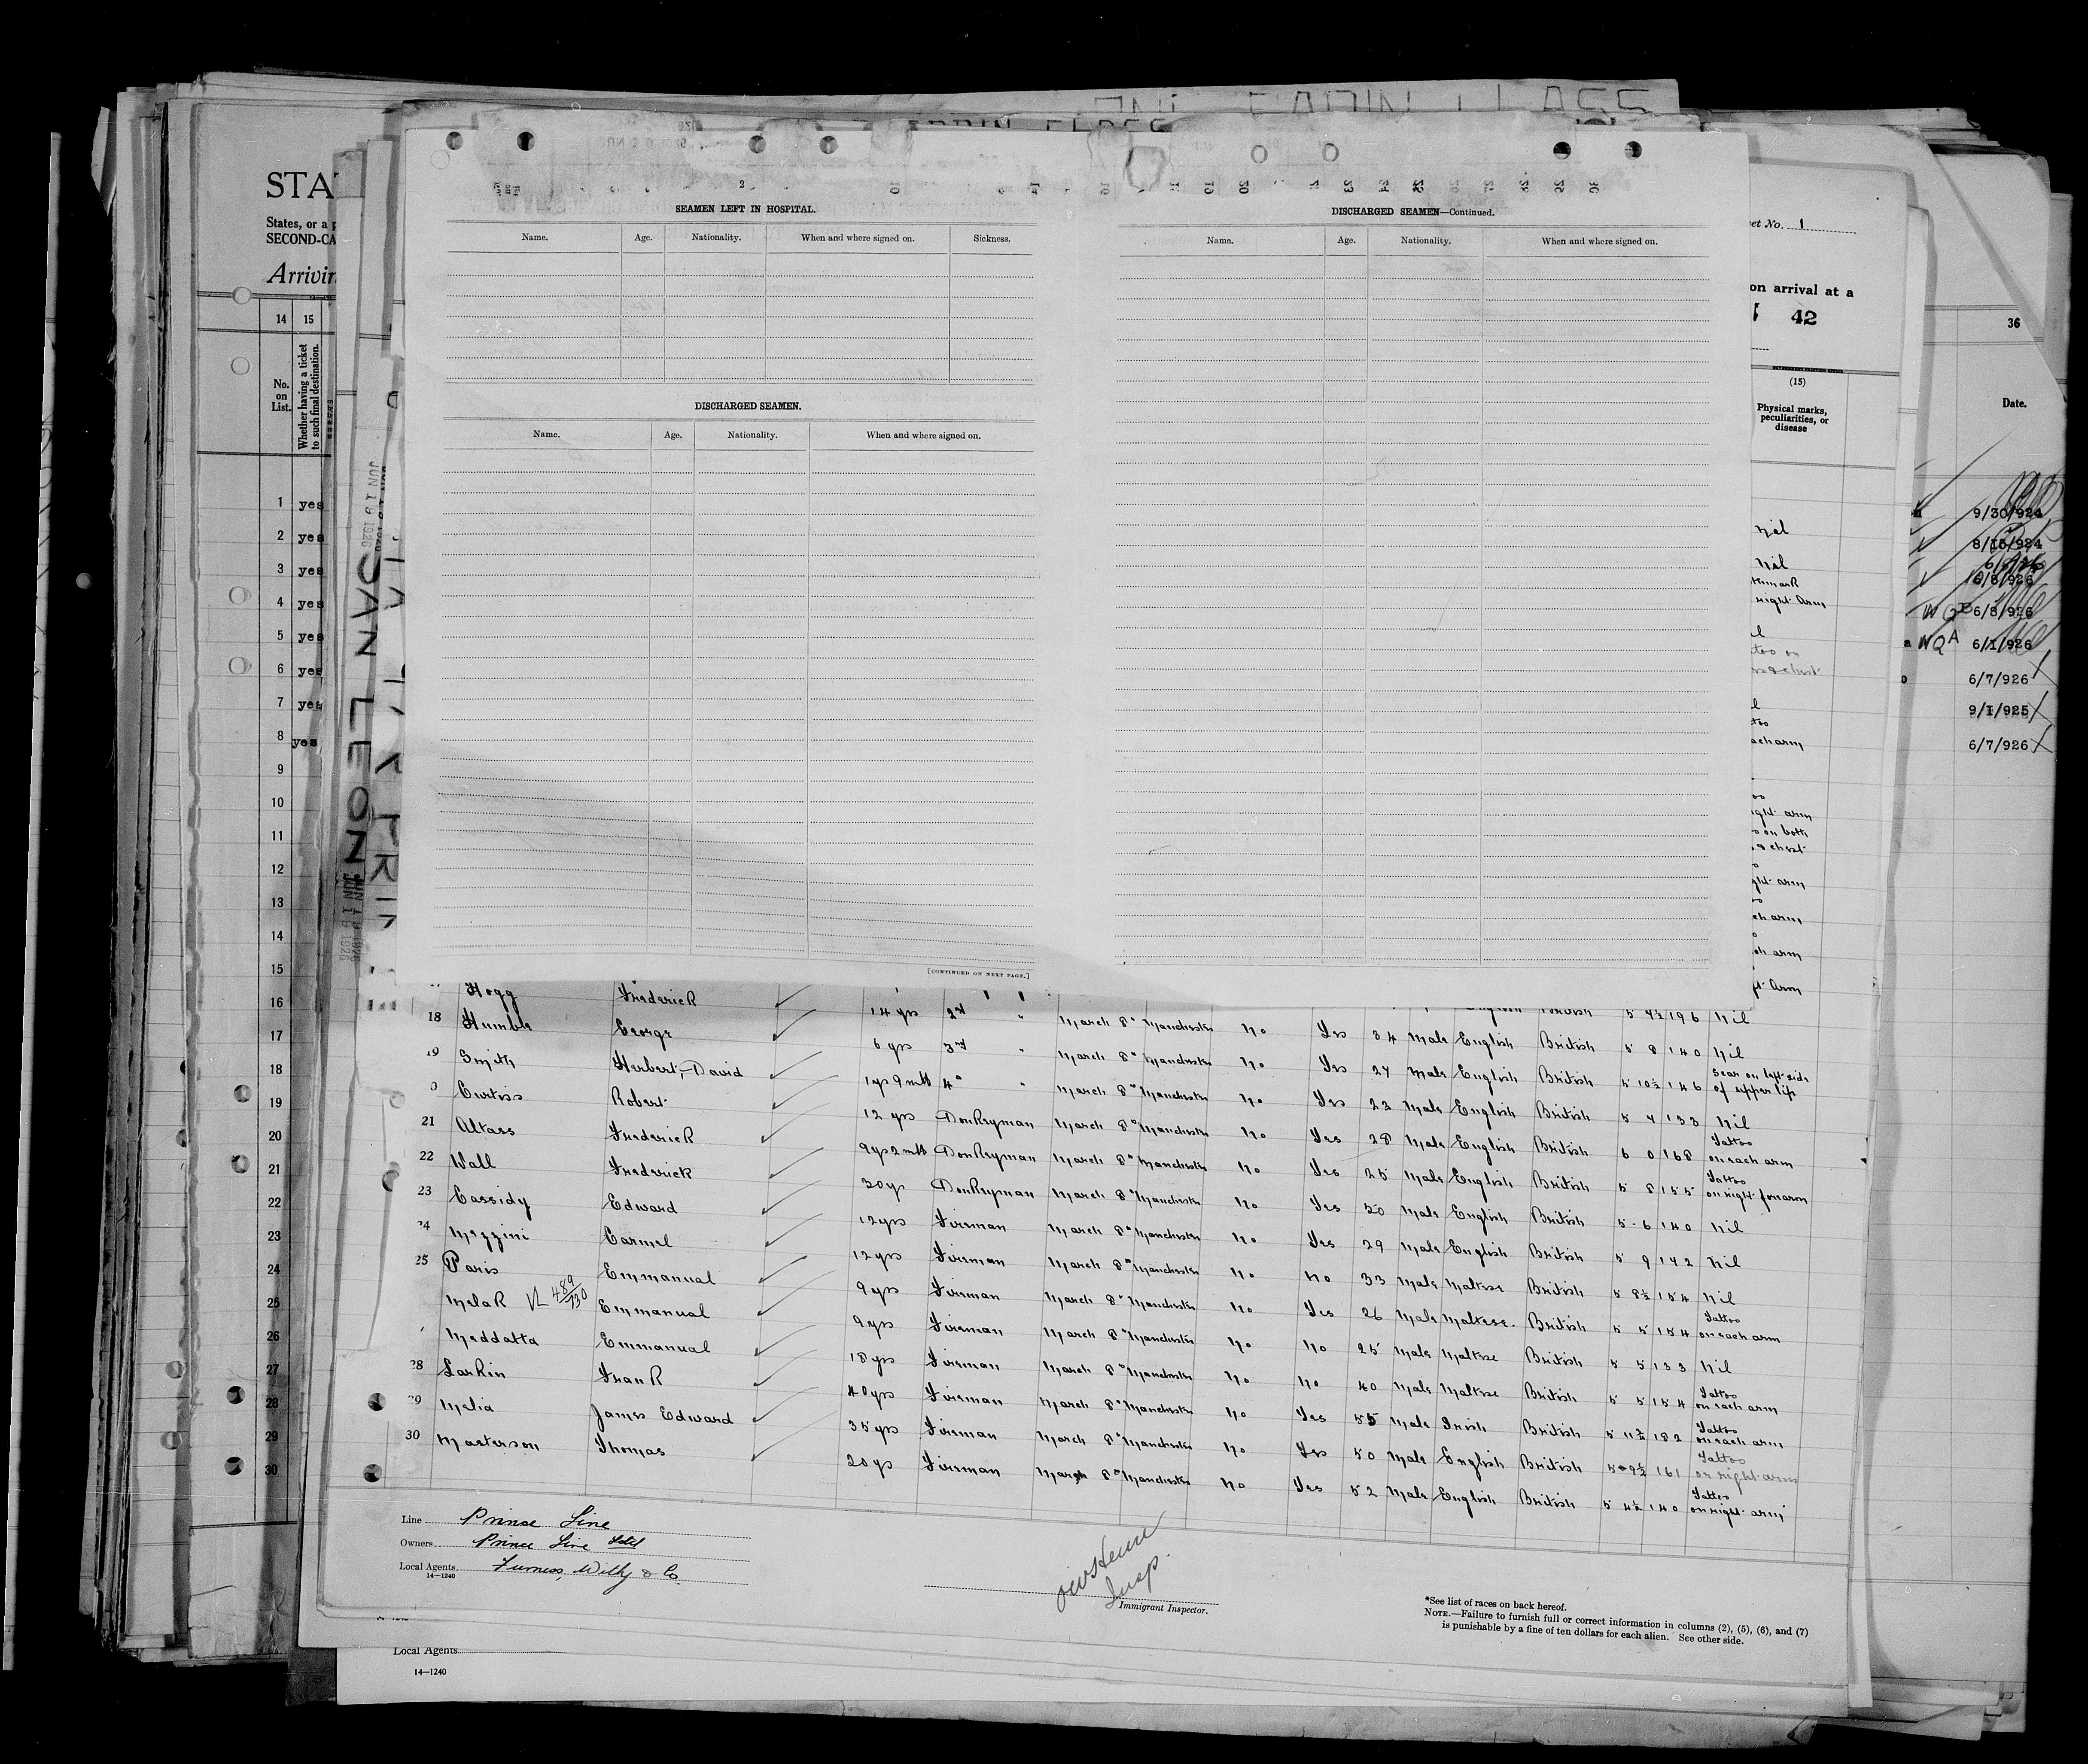 STA
States, or a p
SECOND-CA
Arrivin
14 15
No. on List.
Whether having a ticket to such final destination.
1 yes
2 yes
3 yes
4 yes
5 yes
6 yes
7 yes
8 yes
9
10
11
12
13
14
15
16
17
18
19
20
21
22
23
24
25
26
27
28
29
30
JUN 19 1926
SAN LEON
SEAMEN LEFT IN HOSPITAL.
Name. Age. Nationality. When and where signed on. Sickness.
DISCHARGED SEAMEN.
Name. Age. Nationality. When and where signed on.
[CONTINUED ON NEXT PAGE.]
DISCHARGED SEAMEN—Continued.
Name. Age. Nationality. When and where signed on.
et No. 1
on arrival at a
42
(15)
Physical marks, peculiarities, or disease
nil
nil
right arm
each arm
ight arm
s on both
& chest
ght arm
ch arm
ch arm
36
Date.
9/30/924
8/15/924
6/8/926
6/1/926
6/7/926
9/1/925
6/7/926
Hogg Frederick 14 yrs 2nd " March 8" Manchester No Yes 34 Male English British 5 7½ 196 Nil
18 Humble George 6 yrs 3rd " March 8" Manchester No Yes 27 Male English British 5 8 140 Nil
19 Smith Herbert, David 1 yr 9 mth 4" " March 8" Manchester No Yes 22 Male English British 5 10½ 146 Scar on left side of upper lip
Curtiss Robert 12 yrs Donkeyman March 8" Manchester No Yes 28 Male English British 5 7 133 Nil
21 Altass Frederick 9 yrs 2 mth Donkeyman March 8" Manchester No Yes 25 Male English British 6 0 168 Tattoo on each arm
22 Wall Frederick 30 yr Donkeyman March 8" Manchester No Yes 50 Male English British 5 8 155 Tattoo on right forearm
23 Cassidy Edward 12 yrs Fireman March 8" Manchester No Yes 29 Male English British 5 6 140 Nil
24 Mezzini Carmel 12 yrs Fireman March 8" Manchester No No 33 Male Maltese British 5 9 142 Nil
25 Paris Emmanual 9 yrs Fireman March 8" Manchester No Yes 26 Male Maltese British 5 8½ 154 Nil
Melak VL 489/930 Emmanual 9 yrs Fireman March 8" Manchester No No 25 Male Maltese British 5 5 154 Tattoo on each arm
Meddatta Emmanual 18 yrs Fireman March 8" Manchester No No 40 Male Maltese British 5 5 133 Nil
28 Larkin Frank 40 yrs Fireman March 8" Manchester No Yes 55 Male Irish British 5 5 154 Tattoo on each arm
29 Melia James Edward 35 yrs Fireman March 8" Manchester No Yes 50 Male English British 5 11½ 182 Tattoo on each arm
30 Masterson Thomas 20 yr Fireman March 8" Manchester No Yes 52 Male English British 5 9½ 161 Tattoo on right arm
5 4½ 140 Tattoo on right arm
Line Prince Line
Owners Prince Line Ltd
Local Agents Furness, Withy & Co.
14—1240
Insp.
Immigrant Inspector.
*See list of races on back hereof.
NOTE.—Failure to furnish full or correct information in columns (2), (5), (6), and (7)
is punishable by a fine of ten dollars for each alien. See other side.
Local Agents
14—1240